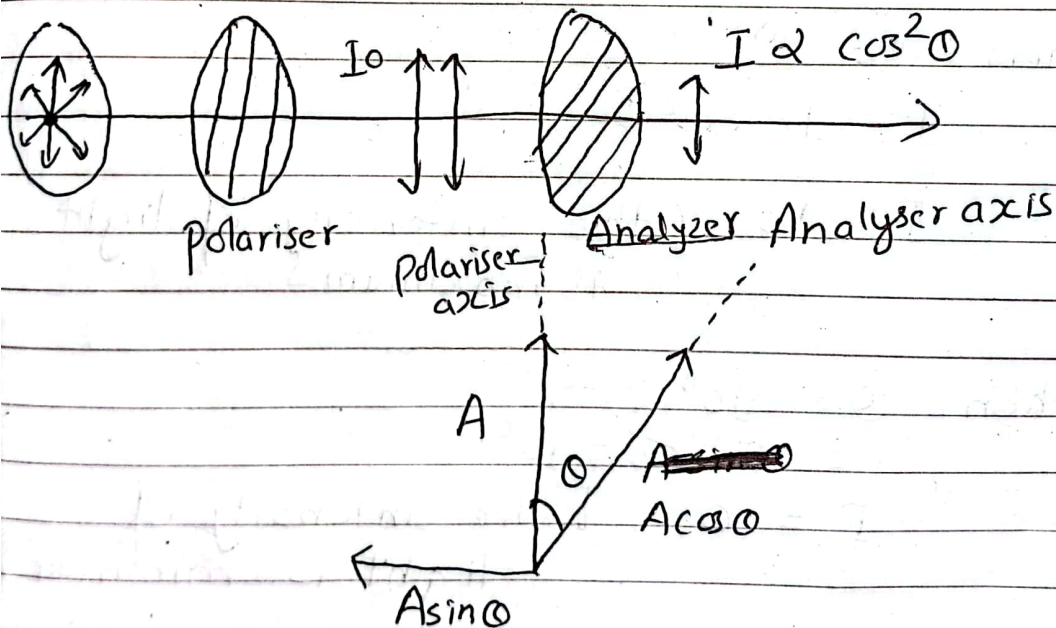 I0
I α cos²θ
Polariser
Analyzer
Analyser axis
Polariser
axis
A
θ
Acosθ
Asinθ